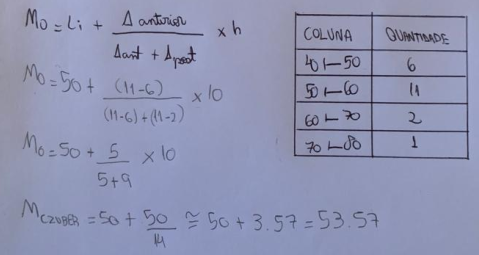 Mo = Li + Δ anterior / Δant + Δpost × h
Mo = 50 + (11-6) / (11-6)+(11-2) × 10
Mo = 50 + 5 / 5+9 × 10
M CZUBER = 50 + 50 / 14 ≅ 50 + 3.57 = 53.57
COLUNA QUANTIDADE
40 ⊢ 50 6
50 ⊢ 60 11
60 ⊢ 70 2
70 ⊢ 80 1